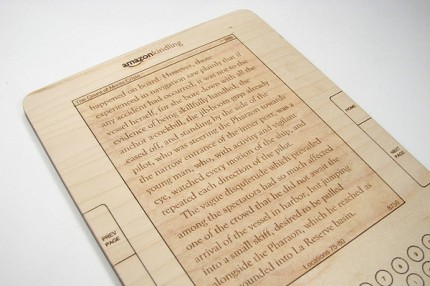 amazonkindling
The Count of Monte Cristo
happened on board. However, those
experienced in navigation saw plainly that if
any accident had occurred, it was not to the
vessel herself, for she bore down with all the
evidence of being skilfully handled, the
anchor a-cockbill, the jib-boom guys already
eased off, and standing by the side of the
pilot, who was steering the Pharaon towards
the narrow entrance of the inner port, was a
young man, who, with activity and vigilant
eye, watched every motion of the ship, and
repeated each direction of the pilot.
The vague disquietude which prevailed
among the spectators had so much affected
one of the crowd that he did not await the
arrival of the vessel in harbor, but jumping
into a small skiff, desired to be pulled
alongside the Pharaon, which he reached as
rounded into La Reserve basin.
Locations 75-80
PREV
PAGE
HOME
NEXT
PAGE